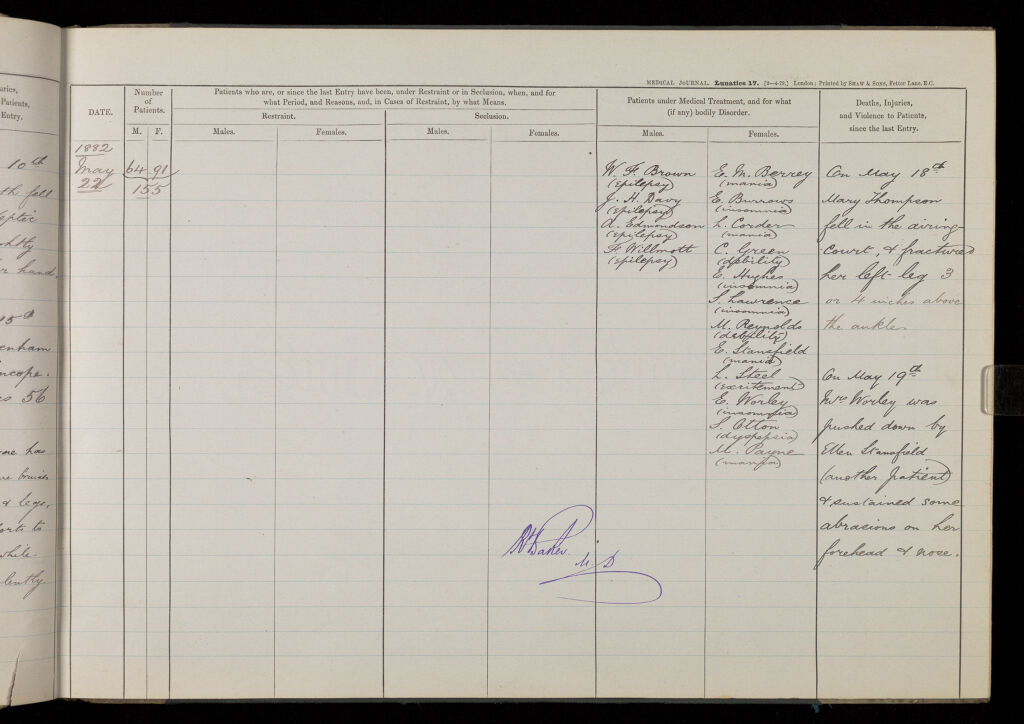 uries,
Patients,
Entry.
10th
th fell
leptic
ghtly
r hand.
15th
enham
ncope.
es 56
one has
ne bruises
& legs,
orts to
while
lently.
MEDICAL JOURNAL. Lunatics 17. [2—4-79.] London: Printed by SHAW & SONS, Fetter Lane, E.C.
DATE.
Number
of
Patients.
M. F.
Patients who are, or since the last Entry have been, under Restraint or in Seclusion, when, and for
what Period, and Reasons, and, in Cases of Restraint, by what Means.
Restraint.
Seclusion.
Males. Females. Males. Females.
Patients under Medical Treatment, and for what
(if any) bodily Disorder.
Males. Females.
Deaths, Injuries,
and Violence to Patients,
since the last Entry.
1882
May
22
64 91
155
W. F. Brown
(epilepsy)
J. H. Davy
(epilepsy)
A. Edmondson
(epilepsy)
F. Willmott
(epilepsy)
E. M. Berrey
(mania)
E. Burrows
(insomnia)
L. Corder
(mania)
C. Green
(debility)
E. Hughes
(insomnia)
S. Lawrence
(insomnia)
M. Reynolds
(debility)
E. Stansfield
(mania)
L. Steel
(excitement)
E. Worley
(insomnia)
S. Otton
(dyspepsia)
M. Payne
(mania)
On May 18th
Mary Thompson
fell in the airing-
court, & fractured
her left leg 3
or 4 inches above
the ankle.
On May 19th
Mrs Worley was
pushed down by
Ellen Stansfield
(another patient)
& sustained some
abrasions on her
forehead & nose.
Baker M D